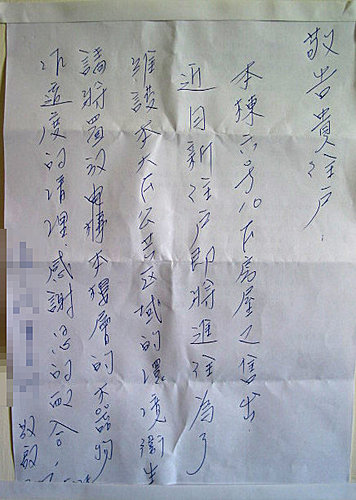 敬告貴住戶:
本棟六号10F房屋已售出
近日新住戶即將進住為了
維護本大F公共区域的環境衛生
請將置放電梯本樓層的不器物
作適度的清理.感謝您的配合!
敬啟